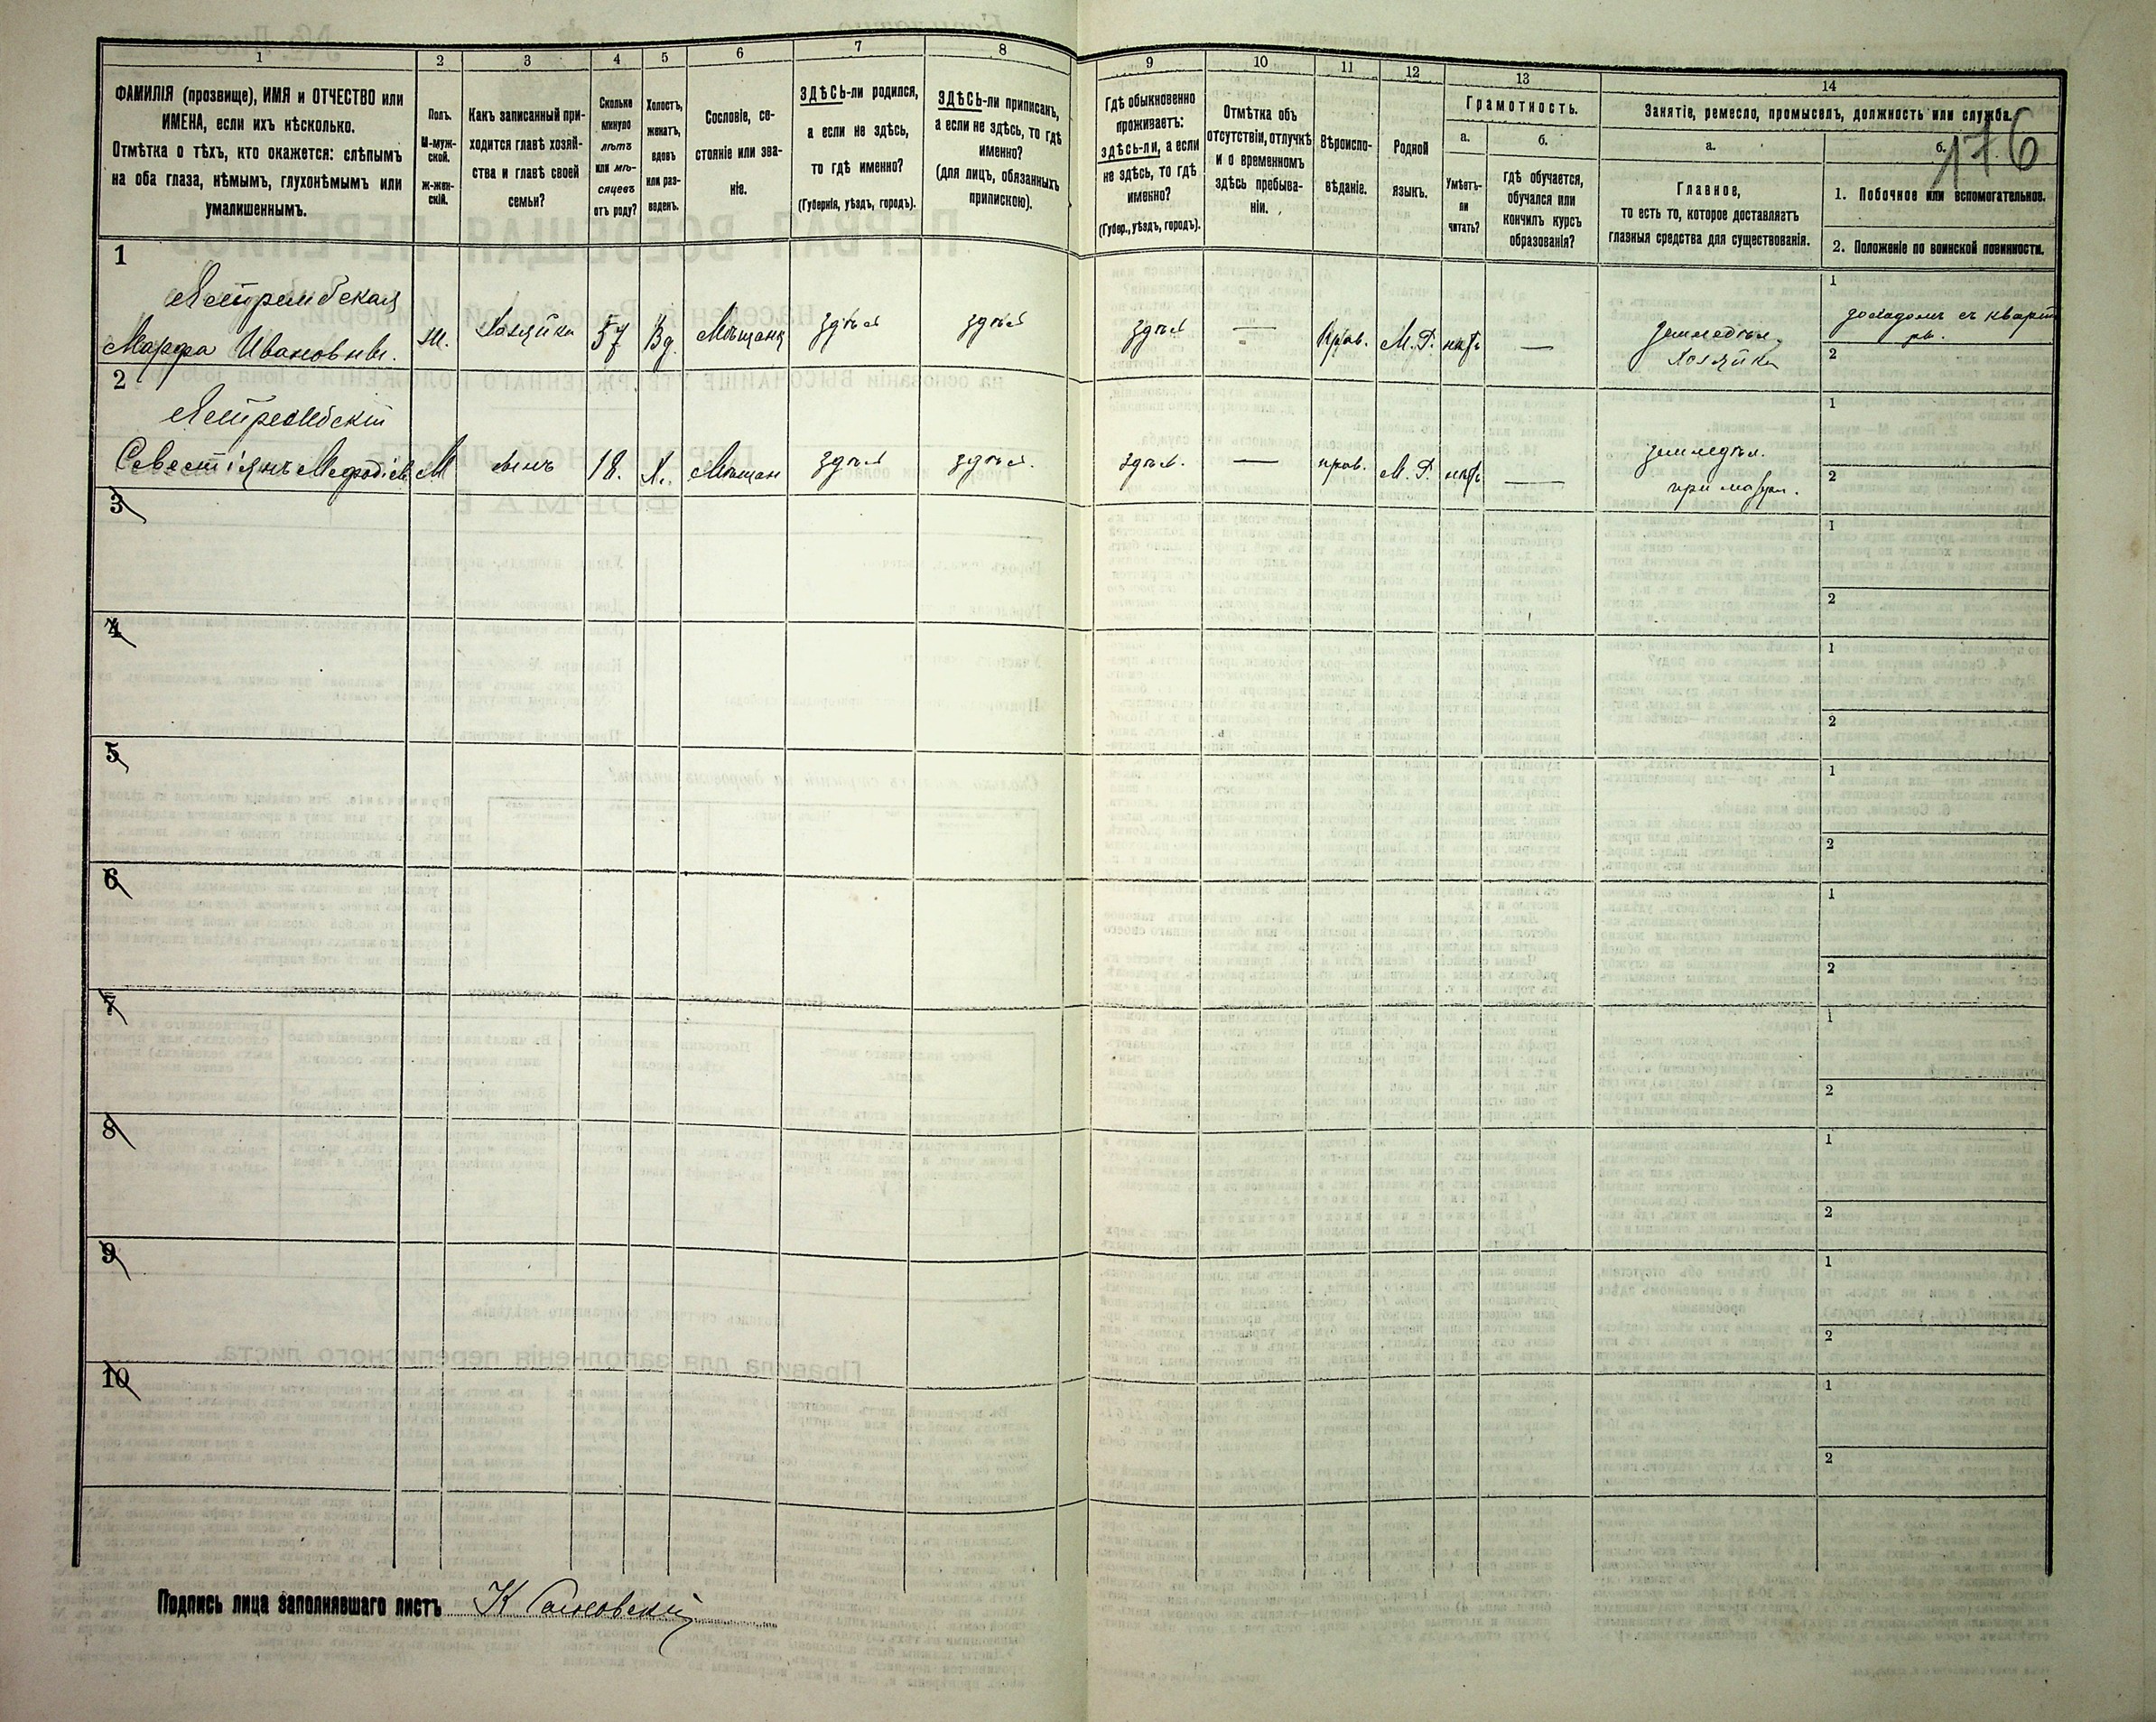 1
2
3
4
5
6
7
8
ФАМИЛІЯ (прозвище), ИМЯ и ОТЧЕСТВО или
ИМЕНА, если ихъ нѣсколько.
Отмѣтка о тѣхъ, кто окажется: слѣпымъ
на оба глаза, нѣмымъ, глухонѣмымъ или
умалишеннымъ.
Полъ.
М-муж-
ской.
Ж-жен-
скій.
Какъ записанный при-
ходится главѣ хозяй-
ства и главѣ своей
семьи?
Сколько
минуло
лѣтъ
или мѣ-
сяцевъ
отъ роду?
Холостъ,
женатъ,
вдовъ
или раз-
веденъ.
Сословіе, со-
стояніе или зва-
ніе.
ЗДѢСЬ-ли родился,
а если не здѣсь,
то гдѣ именно?
(Губернія, уѣздъ, городъ).
ЗДѢСЬ-ли приписанъ,
а если не здѣсь, то гдѣ
именно?
(для лицъ, обязанныхъ
припискою).
9
10
11
12
13
14
Гдѣ обыкновенно
проживаетъ:
здѣсь-ли, а если
не здѣсь, то гдѣ
именно?
(Губер., уѣздъ, городъ).
Отмѣтка объ
отсутствіи, отлучкѣ
и о временномъ
здѣсь пребыва-
ніи.
Вѣроиспо-
вѣданіе.
Родной
языкъ.
Грамотность.
а.
б.
Умѣетъ-
ли
читать?
гдѣ обучается,
обучался или
кончилъ курсъ
образованія?
Занятіе, ремесло, промыселъ, должность или служба.
176
а.
б.
Главное,
то есть то, которое доставляетъ
главныя средства для существованія.
1. Побочное или вспомогательное.
2. Положеніе по воинской повинности.
1
Ястрембская
Марфа Ивановна.
ж.
Хозяйка
57
Вд.
Мѣщанка
здѣсь
здѣсь
здѣсь
—
Прав.
М. Р.
нѣтъ
—
земледѣл.
Хозяйка
1
2
2
Ястрембскій
Севестіянъ Мефодіев.
М
сынъ
18.
Х.
Мѣщан
здѣсь
здѣсь.
здѣсь.
—
прав.
М. Р.
нѣтъ
—
земледѣл.
при матери.
1
2
3
1
2
4
1
2
5
1
2
6
1
2
7
1
2
8
1
2
9
1
2
10
1
2
Подпись лица заполнявшаго листъ